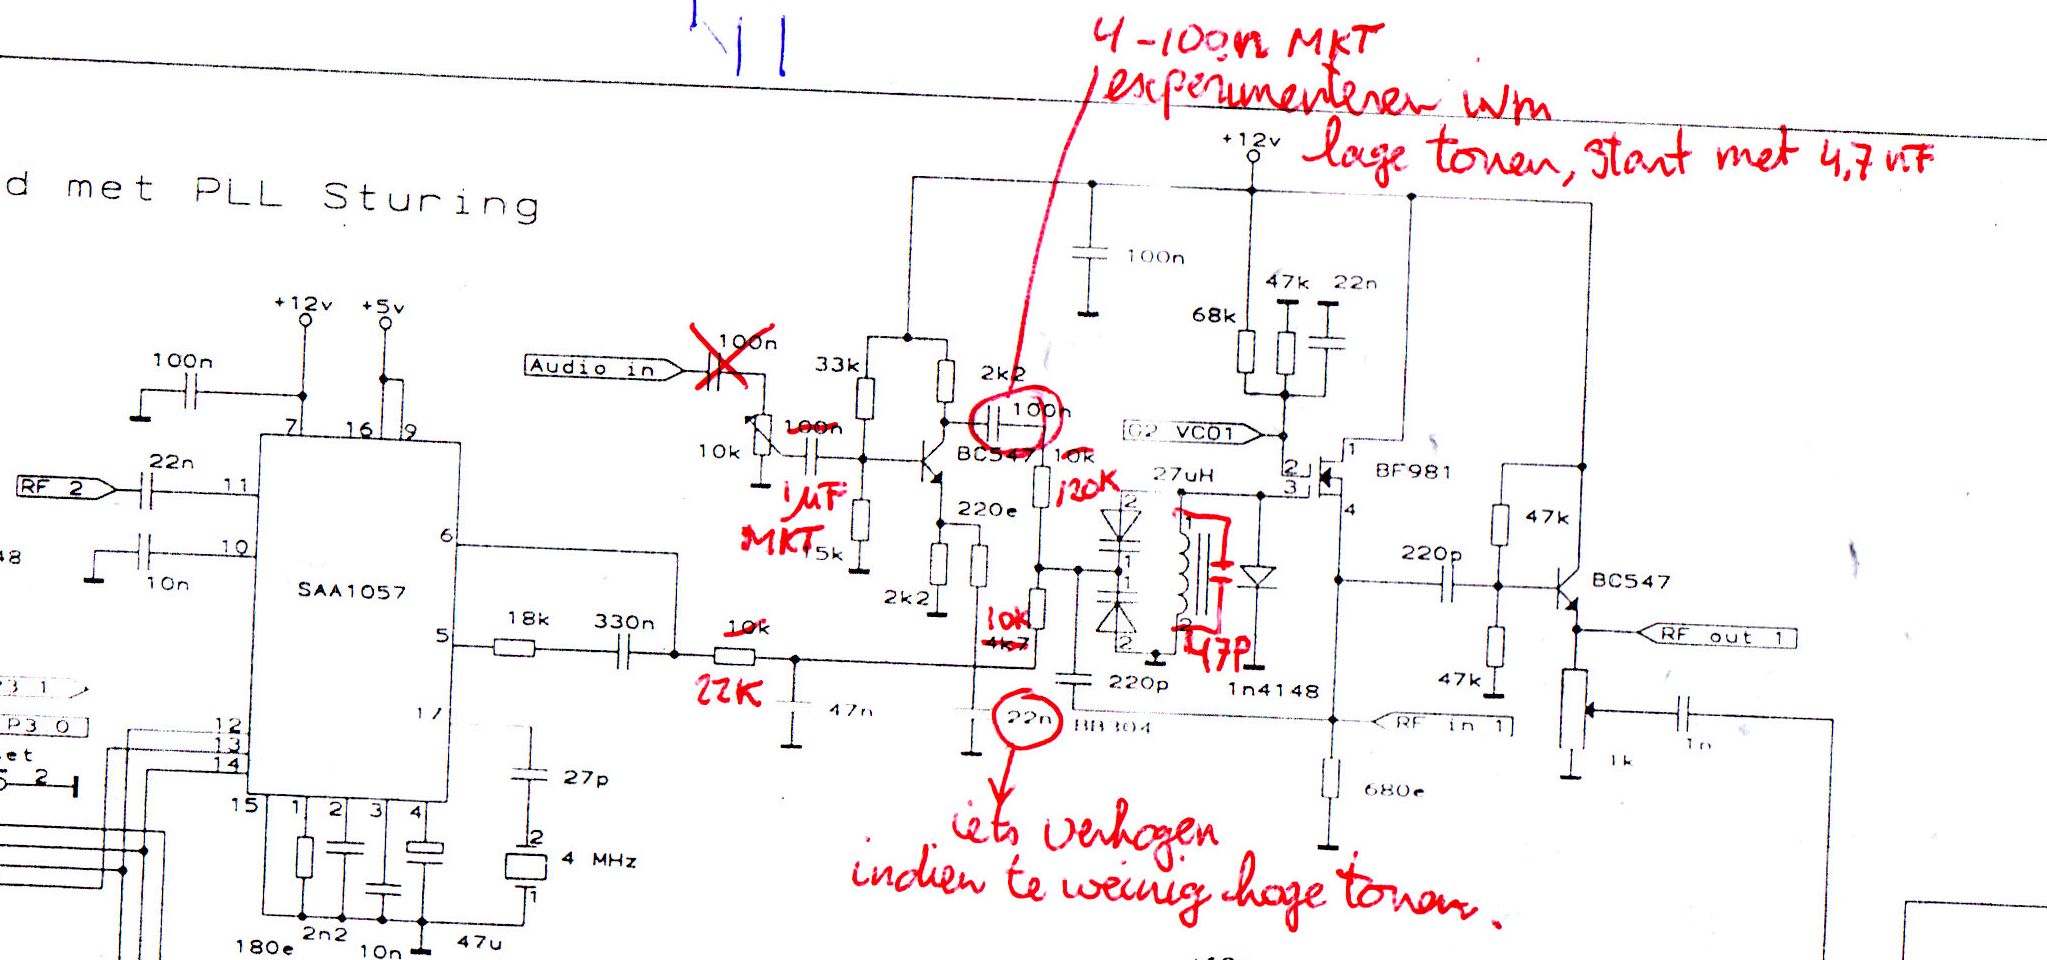 4-100n MKT
experimenteren ivm
lage tonen, start met 4,7 nF
d met PLL Sturing
+12v
100n
47k 22n
68k
+12v +5v
100n
Audio in
100n
33k
2k2
100n
10k
100n
1µF
MKT
15k
BC547
10k
120K
G2 VCO1
27uH
BF981
1
2
3
4
7 16 9
22n
RF 2
11
10
10n
48
6
SAA1057
5
18k 330n
10k
22K
220e
2k2
10k
4k7
2
1
1
2
1
2
47P
1n4148
220p
47k
BC547
RF out 1
47k
47n
22n
220p
BB304
RF in 1
1n
1k
680e
P3 1
P3 0
et
2
12
13
14
17
27p
15 1 2 3 4
2
4 MHz
1
180e 2n2 10n 47u
iets verhogen
indien te weinig hoge tonen.